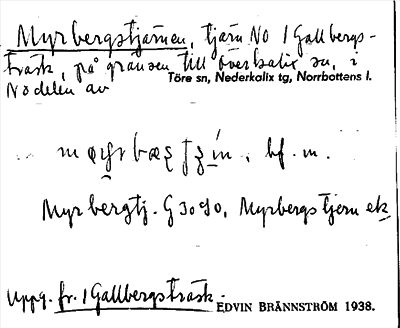 Myrbergstjärnen, tjärn NO 1 Gallbergs-
träsk, på gränsen till Överkalix sn, i
Nö delen av Töre sn, Nederkalix tg, Norrbottens l.
bf. m.
Myrbergtj. G 3090, Myrbergstjern ek
Uppg. fr. 1 Gallbergsträsk.
EDVIN BRÄNNSTRÖM 1938.